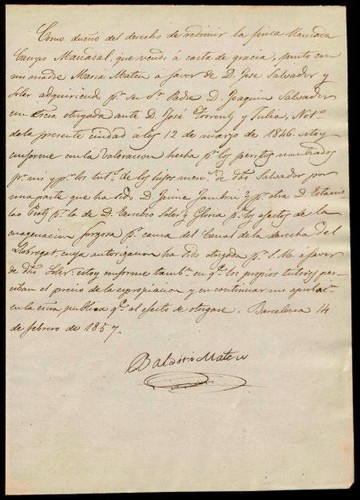 Como dueño del derecho de redimir la finca llamada
Camps Mañasal, que vendí á carta de gracia, junto con
mi madre Maria Mateu á favor de D. Jose Salvador y
Soler adquiriend pr su Sr Padre D. Joaquin Salvador
en Escra otorgada ante D. José Torrent y Juliá, Noto
de la presente ciudad á los 12 de marzo de 1846 estoy
conforme en la valoracion hecha pr los peritos nombrados
pr mi y pr los tuts de los hijos menrs de dho Salvador por
una parte que ha sido D. Jaime Jambrú y pr otra D. Estanis
lao pr la de D. Eusebio Soler y Gloria pa los efectos de la
enagenacion forzosa pr causa del Canal de la derecha del
Llobregat, cuya autorizacion ha sido otorgada pr S.M. á favor
de dho Soler: estoy conforme tambn en qe los propios tutores per
ciban el precio de la espropiacion y en continuar mi aprobacn
en la escra publica qe al efecto se otorgue. Barcelona 14
de febrero de 1857.
Baldiri Mateu